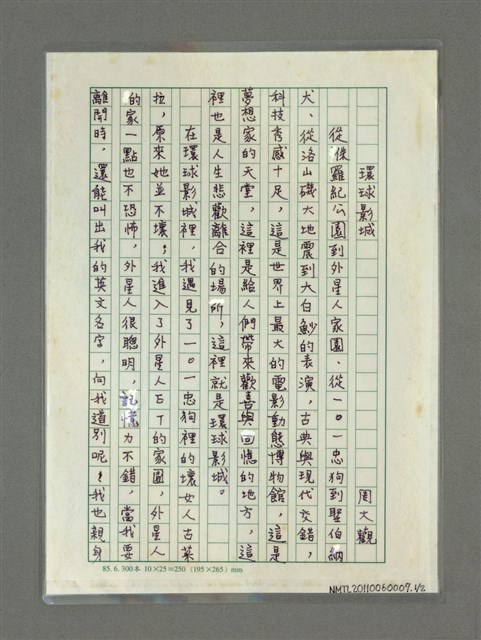 環球影城
周大觀
從侏羅紀公園到外星人家園、從一〇一忠狗到聖伯納
犬、從洛山磯大地震到大白鯊的表演，古典與現代交錯，
科技秀感十足，這是世界上最大的電影動態博物館，這是
夢想家的天堂，這裡是給人們帶來歡喜與回憶的地方，這
裡也是人生悲歡離合的場所，這裡就是環球影城。
在環球影城裡，我遇見了一〇一忠狗裡的壞女人古菜
拉，原來她並不壞；我進入了外星人ET的家園，外星人
的家一點也不恐怖，外星人很聰明，記憶力不錯，當我要
離開時，還能叫出我的英文名字，向我道別呢！我也親身
85.6.300本 10×25=250 (195×265) mm
NMTL20110060007.1/2